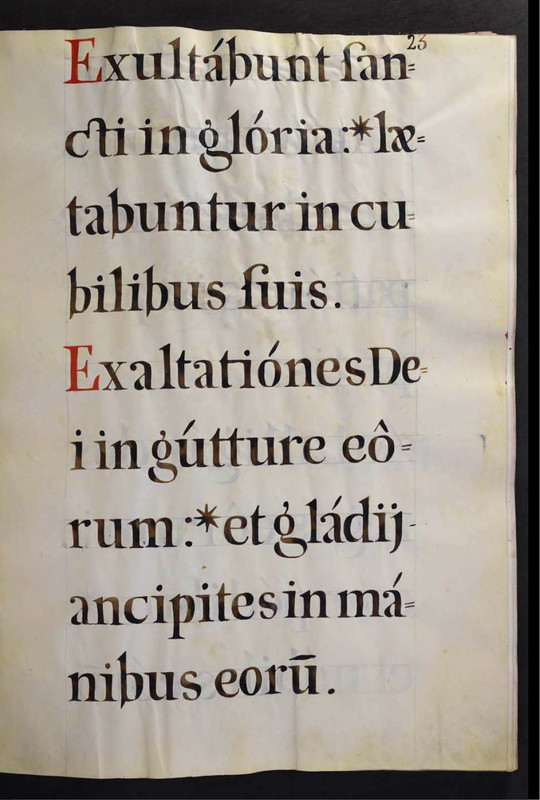 23
Exultábunt ſan=
cti in glória:*læ=
tabuntur in cu=
bilibus ſuis.
Exaltatiónes De=
i in gútture eô=
rum:*et gládij
ancipites in má=
nibus eorū.